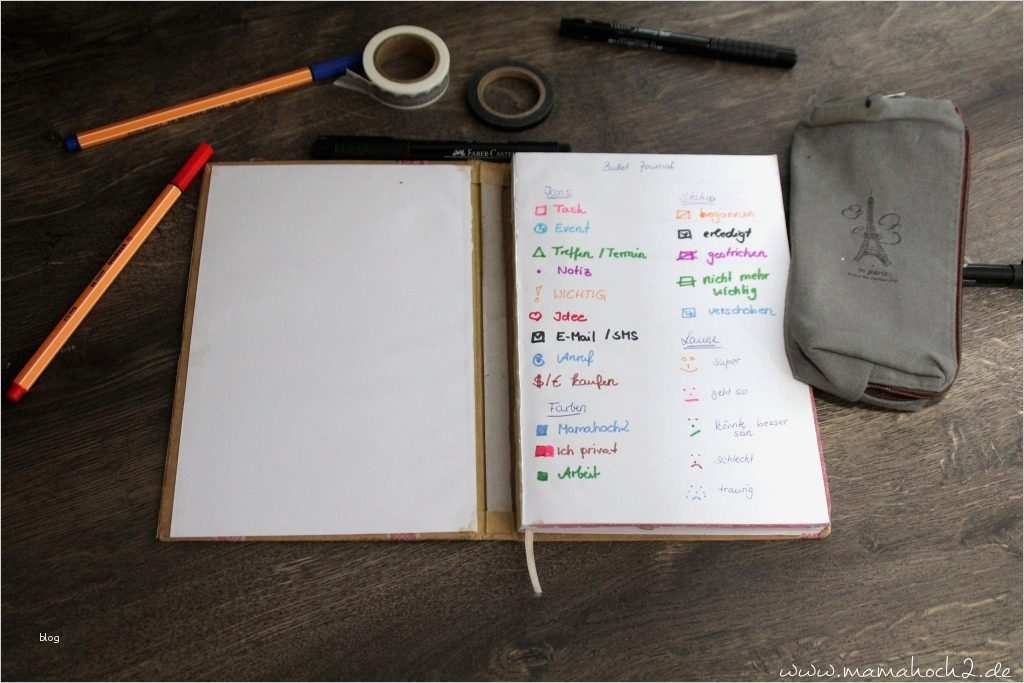 FABER CASTELL
Bullet Journal
Icons
Task
Event
Treffen / Termin
Notiz
! WICHTIG
Idee
E-Mail / SMS
Anruf
$/€ kaufen
Farben
Mamahoch2
Ich privat
Arbeit
Status
begonnen
erledigt
gestrichen
nicht mehr
wichtig
verschoben
Laune
super
geht so
könnte besser
sein
schlecht
traurig
in paris
blog
www.mamahoch2.de